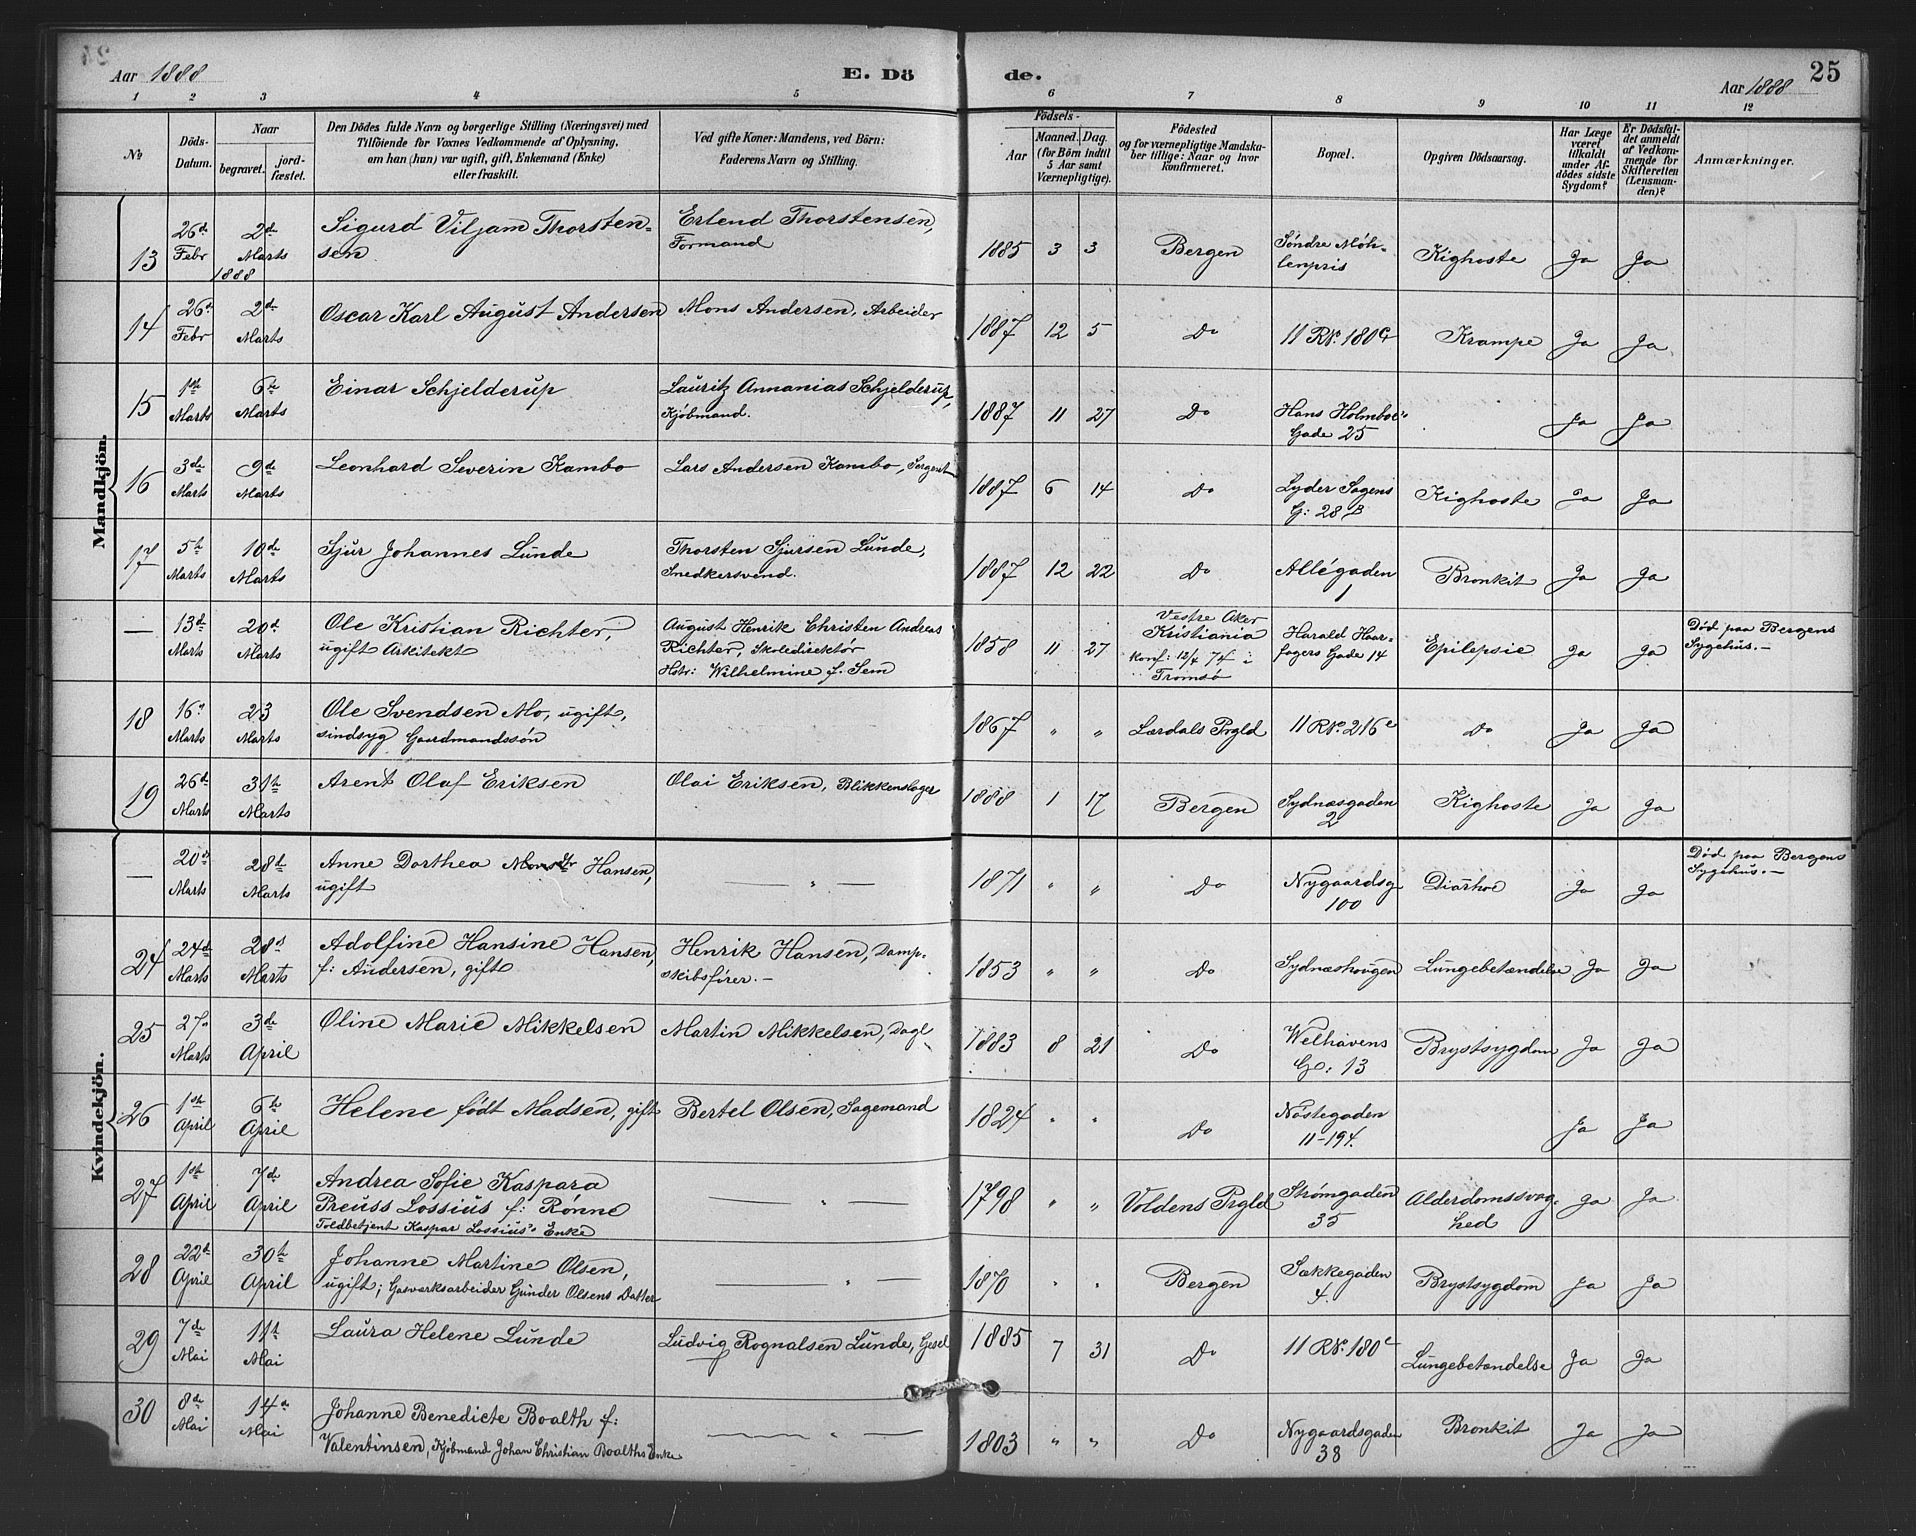 Aar 1888
E. Dö
de.
Aar 1888
25
1 2 3 4 5 6 7 8 9 10 11 12
No
Döds-
Datum.
Naar
begravet.
jord-
fæstet.
Den Dödes fulde Navn og borgerlige Stilling (Næringsvei) med
Tilföiende for Voxnes Vedkommende af Oplysning,
om han (hun) var ugift, gift, Enkemand (Enke)
eller fraskilt.
Ved gifte Koner: Mandens, ved Börn:
Faderens Navn og Stilling.
Födsels-
Aar
Maaned. Dag.
(for Börn indtil
5 Aar samt
Værnepligtige).
Födested
og for værnepligtige Mandska-
ber tillige: Naar og hvor
konfirmeret.
Bopæl.
Opgiven Dödsaarsag.
Har Læge
været
tilkaldt
under Af-
dödes sidste
Sygdom?
Er Dödsfal-
det anmeldt
af Vedkom-
mende for
Skifteretten
(Lensman-
den)?
Anmærkninger.
Mandkjön.
13 26d Febr 2d Marts 1888 Sigurd Viljam Thorsten-
sen
Erlend Thorstensen,
Formand
1885 3 3 Bergen Söndre Möh-
lenpris
Kighoste Ja Ja
14 26d Febr 2d Marts Oscar Karl August Andersen Mons Andersen, Arbeider 1887 12 5 Do 11 RNo 180 Krampe Ja Ja
15 1ste Marts 6te Marts Einar Schjelderup Lauritz Annanias Schjelderup,
Kjöbmand.
1887 11 27 Do Hans Holmboe's
Gade 25
Ja Ja
16 3de Marts 9de Marts Leonhard Severin Kambo Lars Andersen Kambo, Sergent 1887 6 14 Do Lyder Sagens
G: 28 B
Kighoste Ja Ja
17 5te Marts 10de Marts Sjur Johannes Lunde Thorsten Sjursen Lunde,
Snedkersvend.
1887 12 22 Do Allégaden
1
Bronkit Ja Ja
— 13de Marts 20d Marts Ole Kristian Richter,
ugift Arkitekt
August Henrik Christen Andreas
Richter, Skoledirektör
Hstr: Wilhelmine f. Sem
1858 11 27 Vestre Aker
Kristiania
Konf: 12/4 74 i
Tromsö
Harald Haar-
fagers Gade 14
Epilepsie Ja Ja Död paa Bergens
Sygehus.—
18 16d Marts 23 Marts Ole Svendsen Mo, ugift,
sindsyg Gaardmandssön
1867 " " Lærdals Prgld 11 RNo 216c Do Ja Ja
19 26d Marts 31te Marts Arent Olaf Eriksen Olai Eriksen, Blikkenslager 1888 1 17 Bergen Sydnæsgaden
2
Kighoste Ja Ja
Kvindekjön.
— 20d Marts 28d Marts Anne Dorthea Monsdtr Hansen,
ugift
— " — 1871 " " Do Nygaardsg
100
Diarhoe Ja Ja Död paa Bergens
Sygehus.—
24 24de Marts 28d Marts Adolfine Hansine Hansen,
f: Andersen, gift
Henrik Hansen, Damp-
skibsförer.—
1853 " " Do Sydnæshougen Lungebetændelse Ja Ja
25 27d Marts 3de April Oline Marie Mikkelsen Martin Mikkelsen, Dagl 1883 8 21 Do Welhavens
G: 13
Brystsygdom Ja Ja
26 1ste April 6te April Helene födt Madsen, gift Bertel Olsen, Sagemand 1824 " " Do Nöstegaden
11-194.
Ja Ja
27 1ste April 7de April Andrea Sofie Kaspara
Preuss Lossius f: Rönne
Toldbetjent Kaspar Lossius's Enke
— " — 1798 " " Voldens Prgld Strömgaden
35
Alderdomssvag-
hed
Ja Ja
28 22d April 30te April Johanne Martine Olsen,
ugift; Gasværksarbeider Gunder Olsens Datter
— " — 1870 " " Bergen Sækkegaden
4.
Brystsygdom Ja Ja
29 7de Mai 11te Mai Laura Helene Lunde Ludvig Rognalsen Lunde, Gesel 1885 7 31 Do 11 RNo 180c Lungebetændelse Ja Ja
30 8de Mai 14de Mai Johanne Benedicte Boalth f:
Valentinsen, Kjöbmand Johan Christian Boalths Enke
— " — 1803 " " Do Nygaardsgaden
38
Bronkit Ja Ja